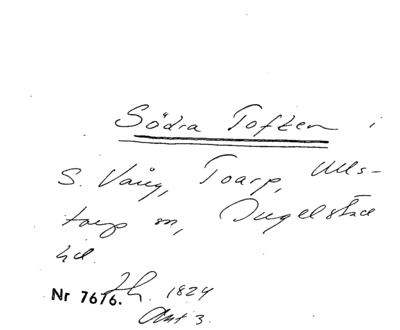 Södra Toften i
S. Vång, Toarp, Ulls-
torps sn, Ingelstad
hd.
Nr 7676. 1824
Akt 3.